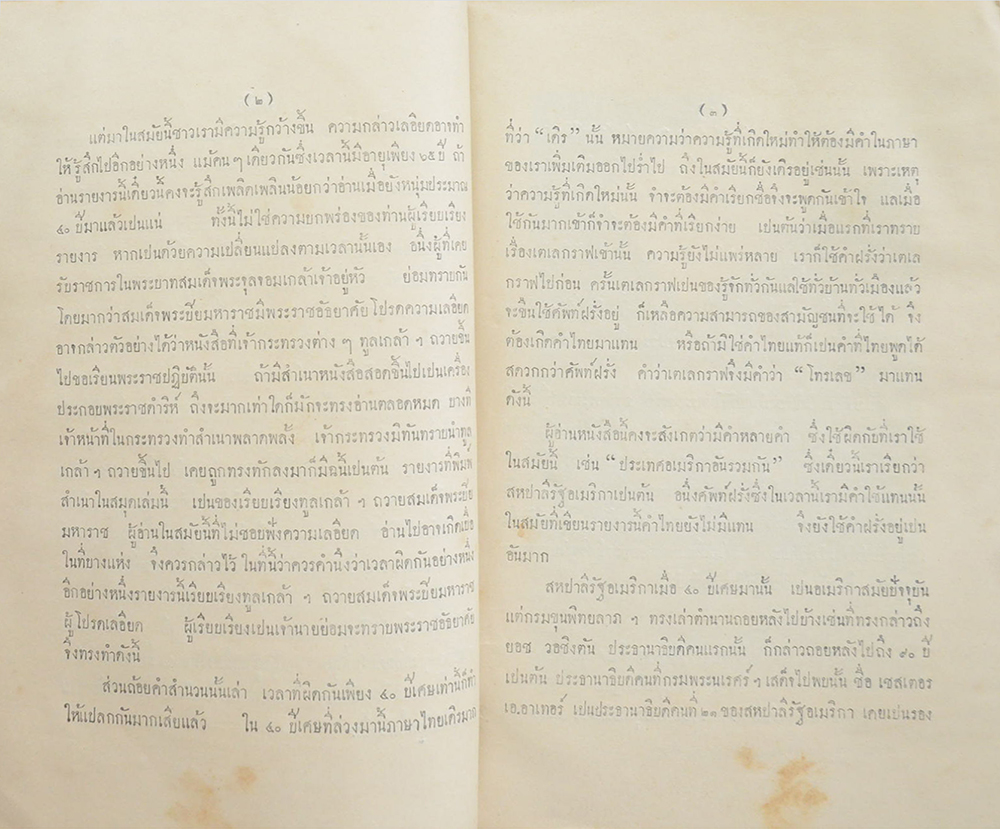 (๒)
แต่มาในสมัยนี้ชาวเรามีความรู้กว้างขึ้น ความกล่าวเลอียดอาจทำ
ให้รู้สึกไปอีกอย่างหนึ่ง แม้คนๆ เดียวกันซึ่งเวลานี้มีอายุเพียง ๖๕ ปี ถ้า
อ่านรายงารนี้เดี๋ยวนี้คงจะรู้สึกเพลิดเพลินน้อยกว่าอ่านเมื่อยังหนุ่มประมาณ
๔๐ ปีมาแล้วเปนแน่ ทั้งนี้ไม่ใช่ความยกพร่องของท่านผู้เรียบเรียง
รายงาร หากเปนด้วยความเปลี่ยนแปลงตามเวลานั้นเอง อนึ่งผู้ที่เคย
รับราชการในพระบาทสมเด็จพระจุลจอมเกล้าเจ้าอยู่หัว ย่อมทราบกัน
โดยมากว่าสมเด็จพระปิยมหาราชมีพระราชอัธยาศัยโปรดความเลอียด
อาจกล่าวตัวอย่างได้ว่าหนังสือที่เจ้ากระทรวงต่าง ๆ ทูลเกล้า ฯ ถวายขึ้น
ไปขอเรียนพระราชปฏิบัตินั้น ถ้ามีสำเนาหนังสือสอดขึ้นไปเปนเครื่อง
ประกอบพระราชดำริห์ ถึงจะมากเท่าใดก็มักจะทรงอ่านตลอดหมด บางที
เจ้าหน้าที่ในกระทรวงทำสำเนาพลาดพลั้ง เจ้ากระทรวงมิทันทราบนำทูล
เกล้า ฯ ถวายขึ้นไป เคยถูกทรงทักลงมาก็มีฉนี้เปนต้น รายงารที่พิมพ์
สำเนาในสมุดเล่มนี้ เปนของเรียบเรียงทูลเกล้า ฯ ถวายสมเด็จพระปิย
มหาราช ผู้อ่านในสมัยนี้ที่ไม่ชอบฟังความเลอียด อ่านไปอาจเกิดเบื่อ
ในที่บางแห่ง จึงควรกล่าวไว้ ในที่นี้ว่าควรคำนึงว่าเวลาผิดกันอย่างหนึ่ง
อีกอย่างหนึ่งรายงารนี้เรียบเรียงทูลเกล้า ฯ ถวายสมเด็จพระปิยมหาราช
ผู้โปรดเลอียด ผู้เรียบเรียงเปนเจ้านายย่อมจะทราบพระราชอัธยาศัย
จึงทรงทำดังนี้
ส่วนถ้อยคำสำนวนนั้นเล่า เวลาที่ผิดกันเพียง ๔๐ ปีเศษเท่านี้ก็ทำ
ให้แปลกกันมากเสียแล้ว ใน ๔๐ ปีเศษที่ล่วงมานี้ภาษาไทยเดิรมาก
(๓)
ที่ว่า “เดิร” นั้น หมายความว่าความรู้ที่เกิดใหม่ทำให้ต้องมีคำในภาษา
ของเราเพิ่มเติมออกไปร่ำไป ถึงในสมัยนี้ก็ยังเดิรอยู่เช่นนั้น เพราะเหตุ
ว่าความรู้ที่เกิดใหม่นั้น จำจะต้องมีคำเรียกชื่อจึงจะพูดกันเข้าใจ แลเมื่อ
ใช้กันมากเข้าก็จำจะต้องมีคำที่เรียกง่าย เปนต้นว่าเมื่อแรกที่เราทราบ
เรื่องเตเลกราฟเข้านั้น ความรู้ยังไม่แพร่หลาย เราก็ใช้คำฝรั่งว่าเตเล
กราฟไปก่อน ครั้นเตเลกราฟเปนของรู้จักทั่วกันแลใช้ทั่วบ้านทั่วเมืองแล้ว
จะขืนใช้ศัพท์ฝรั่งอยู่ ก็เหลือความสามารถของสามัญชนที่จะใช้ได้ จึง
ต้องเกิดคำไทยมาแทน หรือถ้ามิใช่คำไทยแท้ก็เปนคำที่ไทยพูดได้
สดวกกว่าศัพท์ฝรั่ง คำว่าเตเลกราฟจึงมีคำว่า “โทรเลข” มาแทน
ดังนี้
ผู้อ่านหนังสือนี้คงจะสังเกตว่ามีคำหลายคำ ซึ่งใช้ผิดกับที่เราใช้
ในสมัยนี้ เช่น “ประเทศอเมริกาอันรวมกัน” ซึ่งเดี๋ยวนี้เราเรียกว่า
สหปาลีรัฐอเมริกาเปนต้น อนึ่งศัพท์ฝรั่งซึ่งในเวลานี้เรามีคำใช้แทนนั้น
ในสมัยที่เขียนรายงารนี้คำไทยยังไม่มีแทน จึงยังใช้คำฝรั่งอยู่เปน
อันมาก
สหปาลีรัฐอเมริกาเมื่อ ๔๐ ปีเศษมานั้น เปนอเมริกาสมัยปัจจุบัน
แต่กรมขุนพิทยลาภ ฯ ทรงเล่าตำนานถอยหลังไปบ้างเช่นที่ทรงกล่าวถึง
ยอช วอชิงตัน ประธานาธิบดีคนแรกนั้น ก็กล่าวถอยหลังไปถึง ๙๐ ปี
เปนต้น ประธานาธิบดีคนที่กรมพระนเรศร์ ฯ เสด็จไปพบนั้น ชื่อ เชสเตอร
เอ.อาเทอร์ เปนประธานาธิบดีคนที่ ๒๑ ของสหปาลีรัฐอเมริกา เคยเปนรอง